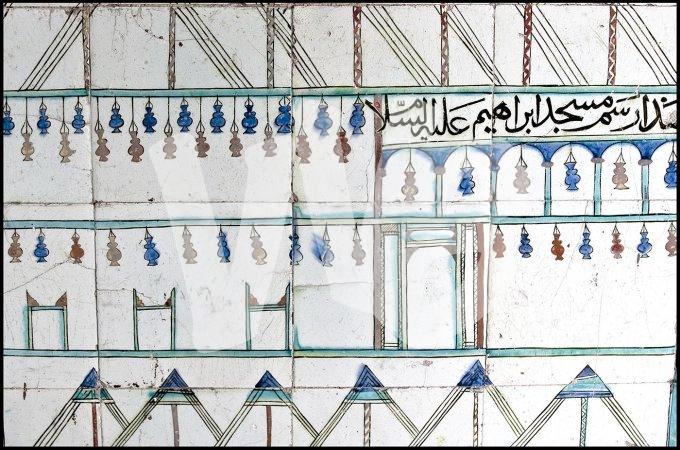 هذا رسم مسجد ابراهيم عليه السلام